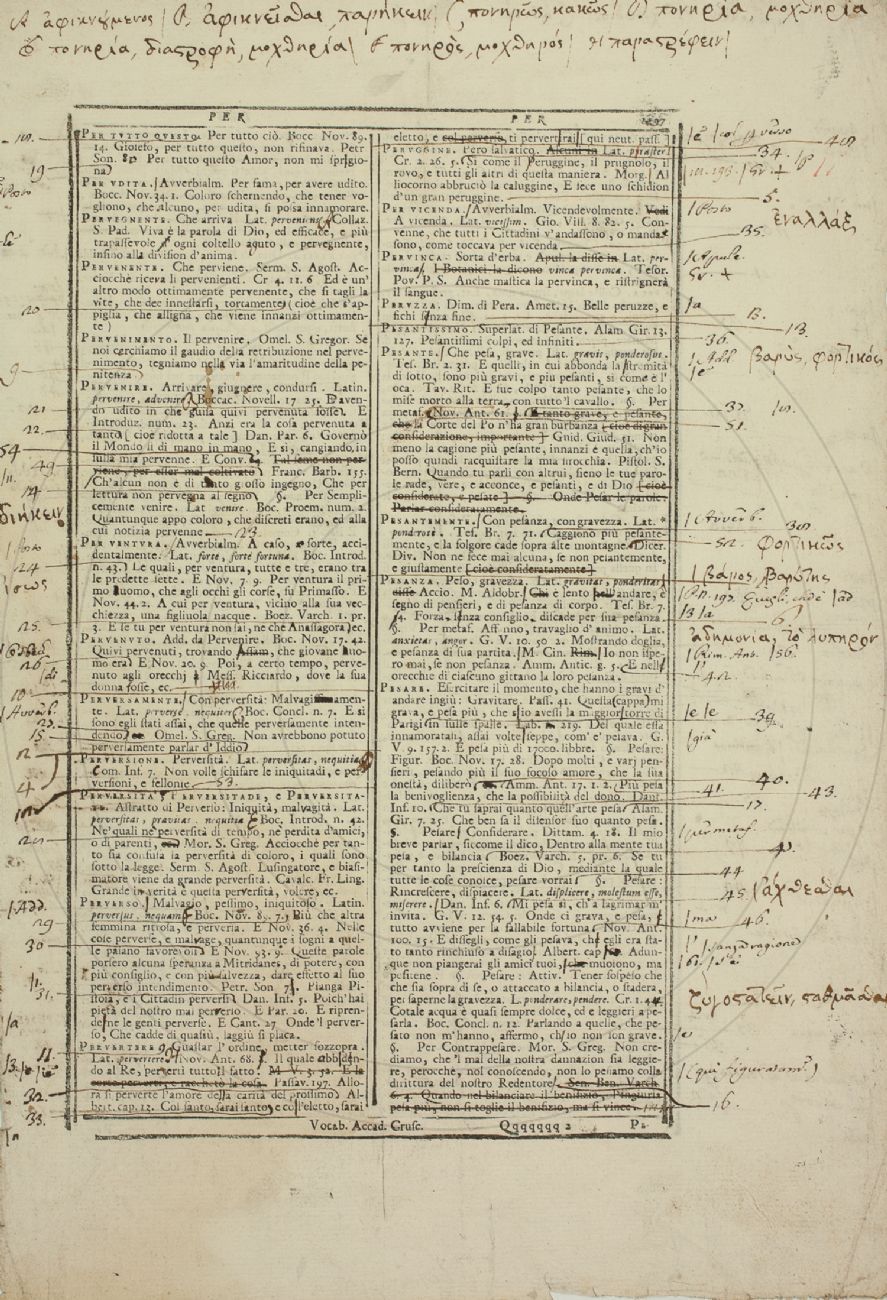 ἀφικνεῖσθαι, παρήκειν πονηρῶς, κακῶς πονηρία, μοχθηρία
πονηρία, διαστροφὴ, μοχθηρία πονηρὸς, μοχθηρός
PER
PER
PER TUTTO QUESTO. Per tutto ciò. Bocc. Nov. 89.
14. Gioioso, per tutto questo, non rifinava. Petr.
Son. Per tutto questo Amor, non mi sprigio-
na
19
PER UDITA. Avverbialm. Per fama, per avere udito.
Bocc. Nov. 34. 1. Coloro schernendo, che tener vo-
gliono, che alcuno, per udita, si possa innamorare.
PERVEGNENTE. Che arriva Lat. perveniens, Collaz.
S. Pad. Viva è la parola di Dio, ed efficace, e più
trapassevole ogni coltello aguto, e pervegnente,
insino alla division d'anima.
PERVENENTE. Che perviene. Serm. S. Agost. Ac-
ciocchè riceva li pervenienti. Cr 4. 11. 6 Ed è un'
altro modo ottimamente pervenente, che si tagli la
vite, che dee innestarsi, tortamente (cioè che s'ap-
piglia, che alligna, che viene innanzi ottimamen-
te)
20
PERVENIMENTO. Il pervenire. Omel. S. Gregor. Se
noi cerchiamo il gaudio della retribuzione nel perve-
nimento, tegniamo nella via l'amaritudine della pe-
nitenza
PERVENIRE. Arrivare, giugnere, condursi. Latin.
pervenire, advenire Boccac. Novell. 17 25. E aven-
do udito in che guisa quivi pervenuta fosse. E
Introduz. num. 23. Anzi era la cosa pervenuta a
tanto [cioè ridotta a tale] Dan. Par. 6. Governò
il Mondo lì di mano in mano, E sì, cangiando, in
sulla mia pervenne. E Conv. Tal seme non per-
viene, per esser mal coltivato Franc. Barb. 155.
Ch'alcun non è di tanto grosso ingegno, Che per
lettura non pervegna al segno §. Per Sempli-
cemente venire. Lat venire. Boc. Proem. num. 2.
Quantunque appo coloro, che discreti erano, ed alla
cui notizia pervenne 23
21
22
49
24
PER VENTURA. Avverbialm. A caso, a sorte, acci-
dentalmente. Lat. forte, forte fortuna. Boc. Introd.
n. 43. Le quali, per ventura, tutte e tre, erano tra
le predette sette. E Nov. 7. 9. Per ventura il pri-
mo huomo, che agli occhi gli corse, fu Primasso. E
Nov. 44. 2. A cui per ventura, vicino alla sua vec-
chiezza, una figliuola nacque. Boez. Varch. 1. pr.
3. E se tu per ventura non sai, ne che Anassagora ec.
25.
PERVENUTO. Add. da Pervenire. Bocc. Nov. 17. 42.
Quivi pervenuti, trovando Assam, che giovane huo-
mo era E Nov. 20. 9. Poi, a certo tempo, perve-
nuto agli orecchi a Mess. Ricciardo, dove la sua
donna fosse, ec.
26
PERVERSAMENTE. Con perversità: Malvagiamente.
Lat. perversè, nequiter Boc. Concl. n. 7. E sì
sono egli stati assai, che quelle perversamente inten-
dendo Omel. S. Greg. Non avrebbono potuto
perversamente parlar d'Iddio
15.
PERVERSIONE. Perversità. Lat. perversitas, nequitia
Com. Inf. 7. Non volle schifare le iniquitadi, e per-
versioni, e fellonie
PERVERSITÀ, PERVERSITADE, e PERVERSITA-
TE. Astratto di Perverso: Iniquità, malvagità. Lat.
perversitas, pravitas, nequitia Boc. Introd. n. 42.
Ne' quali ne perversità di tempo, ne perdita d'amici,
o di parenti, Mor. S. Greg. Acciocchè per tan-
to sia confusa la perversità di coloro, i quali sono
sotto la legge. Serm. S. Agost. Lusingatore, e biasi-
matore viene da grande perversità. Cavalc. Fr. Ling.
Grande in verità è questa perversità, volere, ec.
PERVERSO. Malvagio, pessimo, iniquitoso. Latin.
perversus, nequam Boc. Nov. 89. 7. Più che altra
femmina ritrosa, e perversa. E Nov. 36. 4. Nelle
cose perverse, e malvage, quantunque i sogni a quel-
le paiano favorevoli E Nov. 93. 9. Queste parole
porsero alcuna speranza a Mitridanes, di potere, con
più consiglio, e con più salvezza, dare effetto al suo
perverso intendimento. Petr. Son 75. Pianga Pi-
stoia, e i Cittadin perversi Dan. Inf. 5. Poich'hai
pietà del nostro mal perverso. E Par. 20. E ripren-
dene le genti perverse. E Cant. 27 Onde 'l perver-
so, Che cadde di quassù, laggiù si placa.
29
30
31.
PERVERTERE Guastar l'ordine, metter sozzopra.
Lat. pervertere Nov. Ant. 68. Il quale abbiden-
do al Re, pervertì tutto il fatto. M. V. 3. 72. E la
corte pervertì, e racchetò la cosa. Passav. 197. Allo-
ra si perverte l'amore della carità del prossimo) Al-
bert. cap. 12. Col santo, sarai santo, e coll'eletto, sarai
32.
33.
eletto, e col perverso, ti pervertirai qui neut. pass.
34.
PERUGGINE. Pero salvatico. Alcuni in Lat. piraster
Cr. 2. 26. 5. Sì come il Peruggine, il prugnolo, il
rovo, e tutti gli altri di questa maniera. Morg. Al
liocorno abbruciò la caluggine, E fece uno schidion
d'un gran peruggine.
5.
PER VICENDA. Avverbialm. Vicendevolmente. Vedi
A vicenda. Lat. vicissim. Gio. Vill. 8. 82. 5. Con-
venne, che tutti i Cittadini v'andassono, o mandas-
sono, come toccava per vicenda
ἐναλλάξ
35.
PERVINCA. Sorta d'erba. Apul. la disse in Lat. per-
vincas, I Botanici la dicono vinca pervinca. Tesor.
Pov. P. S. Anche mastica la pervinca, e ristrignerà
il sangue.
PERUZZA. Dim. di Pera. Amet. 15. Belle peruzze, e
fichi senza fine.
PESANTISSIMO. Superlat. di Pesante. Alam. Gir. 13.
127. Pesantissimi colpi, ed infiniti.
13.
36.
PESANTE. Che pesa, grave. Lat. gravis, ponderosus.
Tes. Br. 2. 31. E quelli, in cui abbonda la stremità
di sotto, sono più gravi, e più pesanti, sì come è l'
oca. Tav. Rit. E fue colpo tanto pesante, che lo
mise morto alla terra, con tutto 'l cavallo. §. Per
metaf. Nov. Ant. 61. È tanto grave, e pesante,
che la Corte del Po n'ha gran burbanza [cioè di gran
considerazione, importante] Guid. Giud. 51. Non
meno la cagione più pesante, innanzi è quella, ch'io
posso quindi racquistare la mia sirocchia. Pistol. S.
Bern. Quando tu parli con altrui, sieno le tue paro-
le rade, vere, e acconce, e pesanti, e di Dio [cioè
considerate, e pesate] §. Onde Pesar le parole.
Parlar consideratamente.
βαρὺς, φορτικός
51.
PESANTEMENTE. Con pesanza, con gravezza. Lat.
ponderosè. Tes. Br. 7. 71. Caggiono più pesante-
mente, e la folgore cade sopra alte montagne Dicer.
Div. Non ne fece mai alcuna, se non pesantemente,
e giustamente [cioè consideratamente]
φορτικῶς
52.
PESANZA. Peso, gravezza. Lat. gravitas, ponderitas
disse Accio. M. Aldobr. Chi è lento nell'andare, è
segno di pensieri, e di pesanza di corpo. Tes. Br. 7.
54. Forza, senza consiglio, discade per sua pesanza.
§. Per metaf. Affanno, travaglio d'animo. Lat.
anxietas, angor. G. V. 10. 50 2. Mostrando doglia,
e pesanza di sua partita. M. Cin. Rim. Io non ispe-
ro mai, se non pesanza. Amm. Antic. g. 5. E nell'
orecchie di ciascuno gittano la loro pesanza.
βάρος, βαρύτης
ἀδημονία, τὸ λυπηρόν
42.
PESARE. Esercitare il momento, che hanno i gravi d'
andare ingiù: Gravitare. Pass. 41. Questa cappa mi
grava, e pesa più, che s'io avessi la maggior torre di
Parigi in sulle spalle Lab. n. 219. Del quale essa
innamoratasi, assai volte seppe, com' e' pesava. G.
V 9. 157. 2. E pesa più di 17000. libbre. §. Pesare:
Figur. Boc. Nov. 17. 28. Dopo molti, e varj pen-
sieri, pesando più il suo focoso amore, che la sua
onestà, diliberò Amm. Ant. 17. 1. 2. Più pesa
la benivoglienza, che la possibilità del dono. Dant.
Inf. 10. Che tu saprai quanto quell'arte pesa Alam.
Girr. 7. 25. Che ben sa il difensor suo quanto pesa.
§. Pesare, Considerare. Dittam. 4. 18. Il mio
breve parlar, siccome il dico, Dentro alla mente tua
pesa, e bilancia Boez. Varch. 5. pr. 6. Se tu
per tanto la prescienza di Dio, mediante la quale
tutte le cose conoice, pesare vorrai §. Pesare:
Rincrescere, dispiacere. Lat. displicere, molestum esse,
miserere. Dan. Inf. 6. Mi pesa sì, ch'a lagrimar m'
invita. G. V. 12. 54. 5. Onde ci grava, e pesa,
tutto avviene per la fallabile fortuna Nov. Ant.
100. 15. E dissegli, come gli pesava, ch'egli era sta-
to tanto rinchiuso a disagio Albert. cap Adun-
que non piangerai gli amici tuoi, che muoiono, ma
pesitene. §. Pesare: Attiv. Tener sospeso che
che sia sopra di se, o attaccato a bilancia, o stadera,
per saperne la gravezza. L. ponderare, pendere. Cr. 1. 4.
Cotale acqua è quasi sempre dolce, ed è leggieri a pe-
sarla. Boc. Concl. n. 12. Parlando a quelle, che pe-
sato non m'hanno, affermo, ch'io non son grave.
§. Per Contrappesare. Mor. S. Greg. Non cre-
diamo, che 'l mal della nostra dannazion sia leggie-
re, perocchè, nol conoscendo, non lo pesiamo colla
dirittura del nostro Redentore Sen. Ben. Varch
6. 4. Quando nel bilanciare il benifizio, l'ingiuria
pesa più, non si toglie il benifizio, ma si vince
39.
40.
41.
43.
44
45
46.
ζυγοστατεῖν, σταθμᾶσθαι
(qui figuratam.)
16.
Vocab. Accad. Crusc. Qqqqqqq 2 Pe-